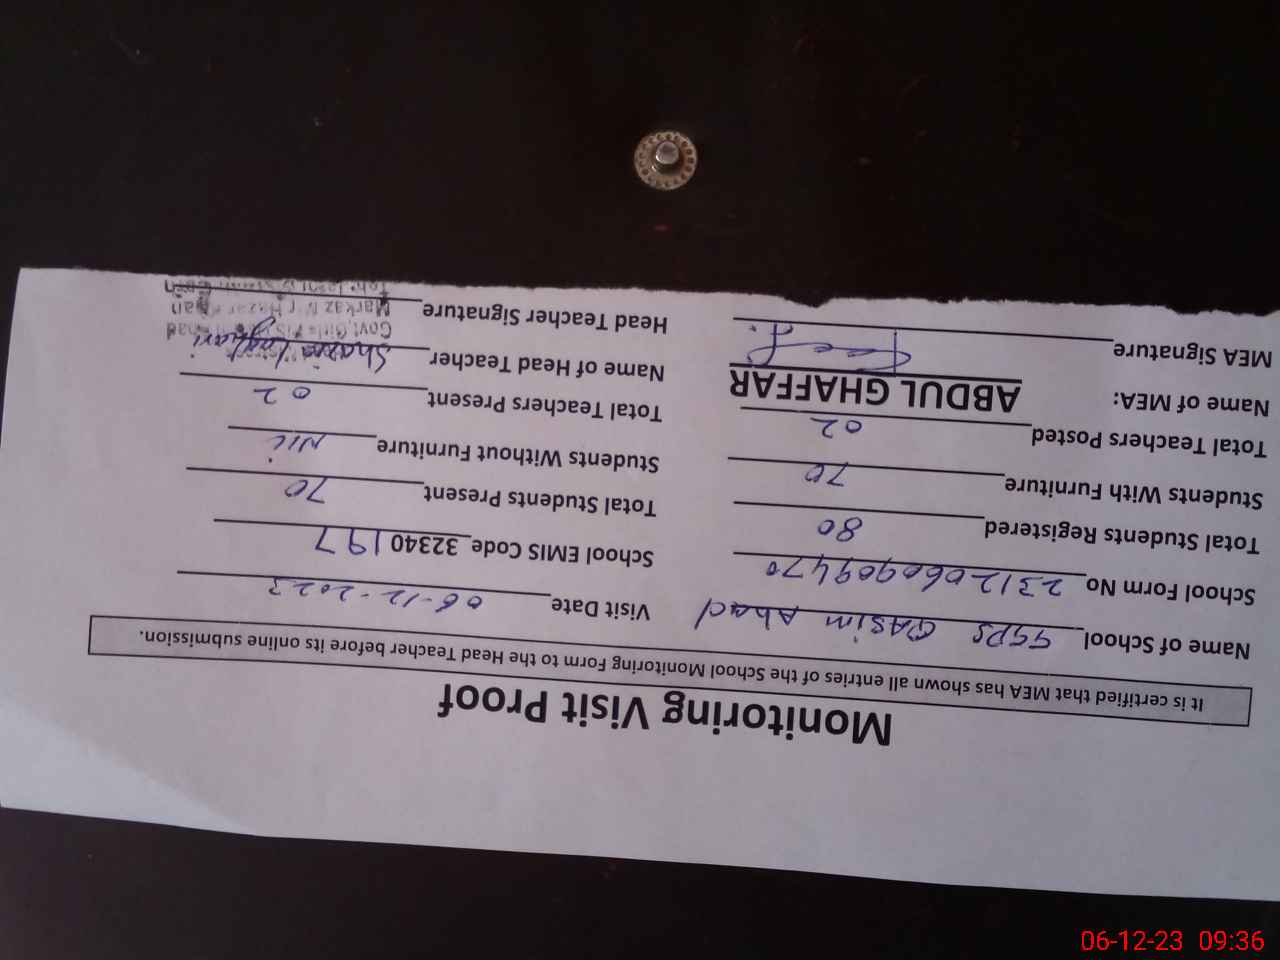 Monitoring Visit Proof
It is certified that MEA has shown all entries of the School Monitoring Form to the Head Teacher before its online submission.
Name of School GGPS QASim Abad Visit Date 06-12-2023
School Form No 231206090947 School EMIS Code 32340197
Total Students Registered 80 Total Students Present 70
Students With Furniture 70 Students Without Furniture Nil
Total Teachers Posted 02 Total Teachers Present 02
Name of MEA: ABDUL GHAFFAR Name of Head Teacher Shazia Laghari
MEA Signature Head Teacher Signature
Govt. Girls
Markaz
06-12-23 09:36